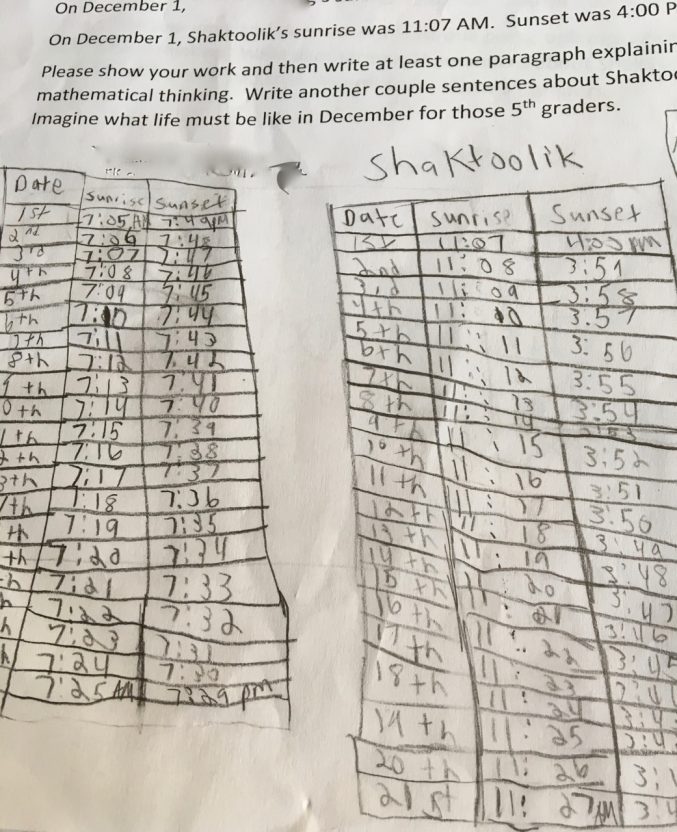 On December 1,
On December 1, Shaktoolik's sunrise was 11:07 AM. Sunset was 4:00 P
Please show your work and then write at least one paragraph explainin
mathematical thinking. Write another couple sentences about Shaktoo
Imagine what life must be like in December for those 5th graders.
Date Sunrise Sunset
1st 7:05 AM 7:49 PM
2nd 7:06 7:48
3rd 7:07 7:47
4th 7:08 7:46
5th 7:09 7:45
6th 7:10 7:44
7th 7:11 7:43
8th 7:12 7:42
9th 7:13 7:41
0th 7:14 7:40
1th 7:15 7:39
2th 7:16 7:38
3th 7:17 7:37
4th 7:18 7:36
th 7:19 7:35
th 7:20 7:34
h 7:21 7:33
h 7:22 7:32
h 7:23 7:31
h 7:24 7:30
7:25 AM 7:29 pm
Shaktoolik
Date Sunrise Sunset
1st 11:07 4:00 pm
2nd 11:08 3:59
3rd 11:09 3:58
4th 11:10 3:57
5th 11:11 3:56
6th 11:12 3:55
7th 11:13 3:54
8th 11:14 3:53
9th 11:15 3:52
10th 11:16 3:51
11th 11:17 3:50
12th 11:18 3:49
13th 11:19 3:48
14th 11:20 3:47
15th 11:21 3:46
16th 11:22 3:4
17th 11:23
18th 11:24 3:4
19th 11:25 3:4
20th 11:26
21st 11:27 AM 3:4